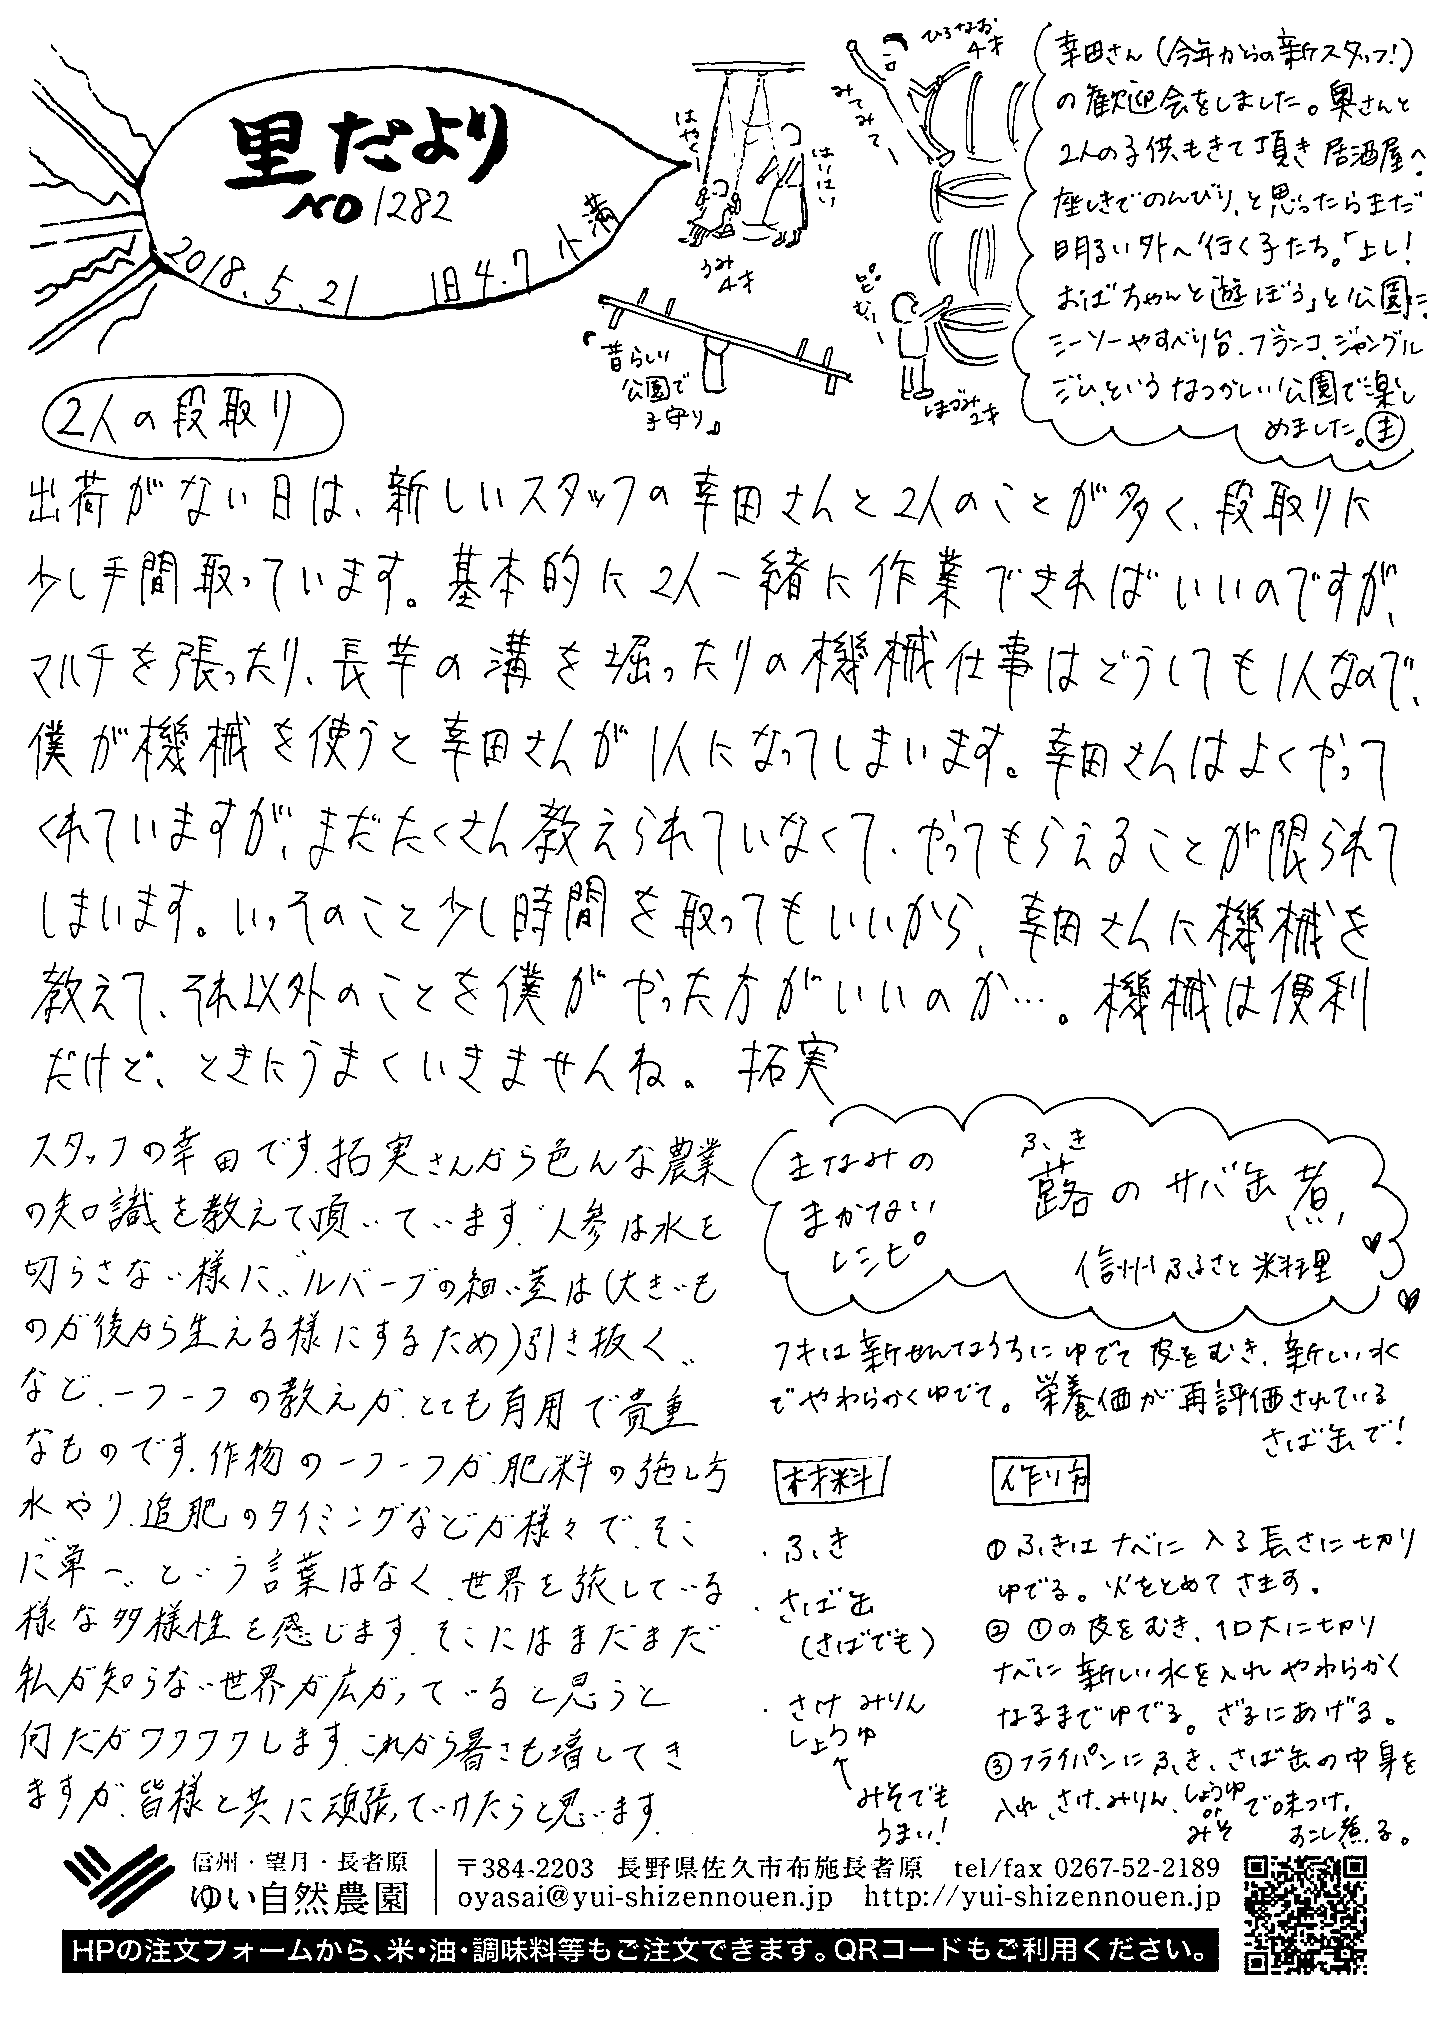 里だより
NO 1282
2018.5.21 旧4.7 小満
はやくー
はいはい
うみ
4才
みてみてー
ひろなお
4才
ほづみ
2才
『昔らしい
公園で
子守り』
幸田さん(今年からの新スタッフ!)
の歓迎会をしました。奥さんと
2人の子供もきて頂き居酒屋へ。
座しきでのんびり、と思ったらまだ
明るい外へ行く子たち。「よし!
おばちゃんと遊ぼう」と公園に。
シーソーやすべり台、ブランコ、ジャングル
ジム、というなつかしい公園で楽し
めました。㊭
2人の段取り
出荷がない日は、新しいスタッフの幸田さんと2人のことが多く、段取りに
少し手間取っています。基本的に2人一緒に作業できればいいのですが、
マルチを張ったり、長芋の溝を堀ったりの機械仕事はどうしても1人なので、
僕が機械を使うと幸田さんが1人になってしまいます。幸田さんはよくやって
くれていますが、まだたくさん教えられていなくて、やってもらえることが限られて
しまいます。いっそのこと少し時間を取ってもいいから、幸田さんに機械を
教えて、それ以外のことを僕がやった方がいいのか…。機械は便利
だけど、ときにうまくいきませんね。 拓実
スタッフの幸田です。拓実さんから色んな農業
の知識を教えて頂いています。"人参は水を
切らさない様に"、"ルバーブの細い茎は(大きいも
のが後から生える様にするため)引き抜く"
など、一つ一つの教えが、とても有用で貴重
なものです。作物の一つ一つが、肥料の施し方
水やり、追肥のタイミングなどが様々で、そこ
に"単一"という言葉はなく、世界を旅している
様な多様性を感じます。そこにはまだまだ
私が知らない世界が広がっていると思うと
何だかワクワクします。これから暑さも増してき
ますが、皆様と共に頑張っていけたらと思います。
まなみの
まかない
レシピ
ふき
蕗のサバ缶煮
信州ふるさと料理
フキは新せんなうちにゆでて皮をむき、新しい水
でやわらかくゆでて。栄養価が再評価されている
さば缶で!
材料
・ふき
・さば缶
(さばでも)
・さけ みりん
しょうゆ
↑
みそでも
うまい!
作り方
①ふきはナベに入る長さに切り
ゆでる。火をとめてさます。
②①の皮をむき、一口大に切り
ナベに新しい水を入れやわらかく
なるまでゆでる。ざるにあげる。
③フライパンにふき、さば缶の中身を
入れ、さけ、みりん、しょうゆ or みそで味つけ、
すこし煮る。
信州・望月・長者原
ゆい自然農園
〒384-2203 長野県佐久市布施長者原 tel/fax 0267-52-2189
oyasai@yui-shizennouen.jp http://yui-shizennouen.jp
HPの注文フォームから、米・油・調味料等もご注文できます。QRコードもご利用ください。